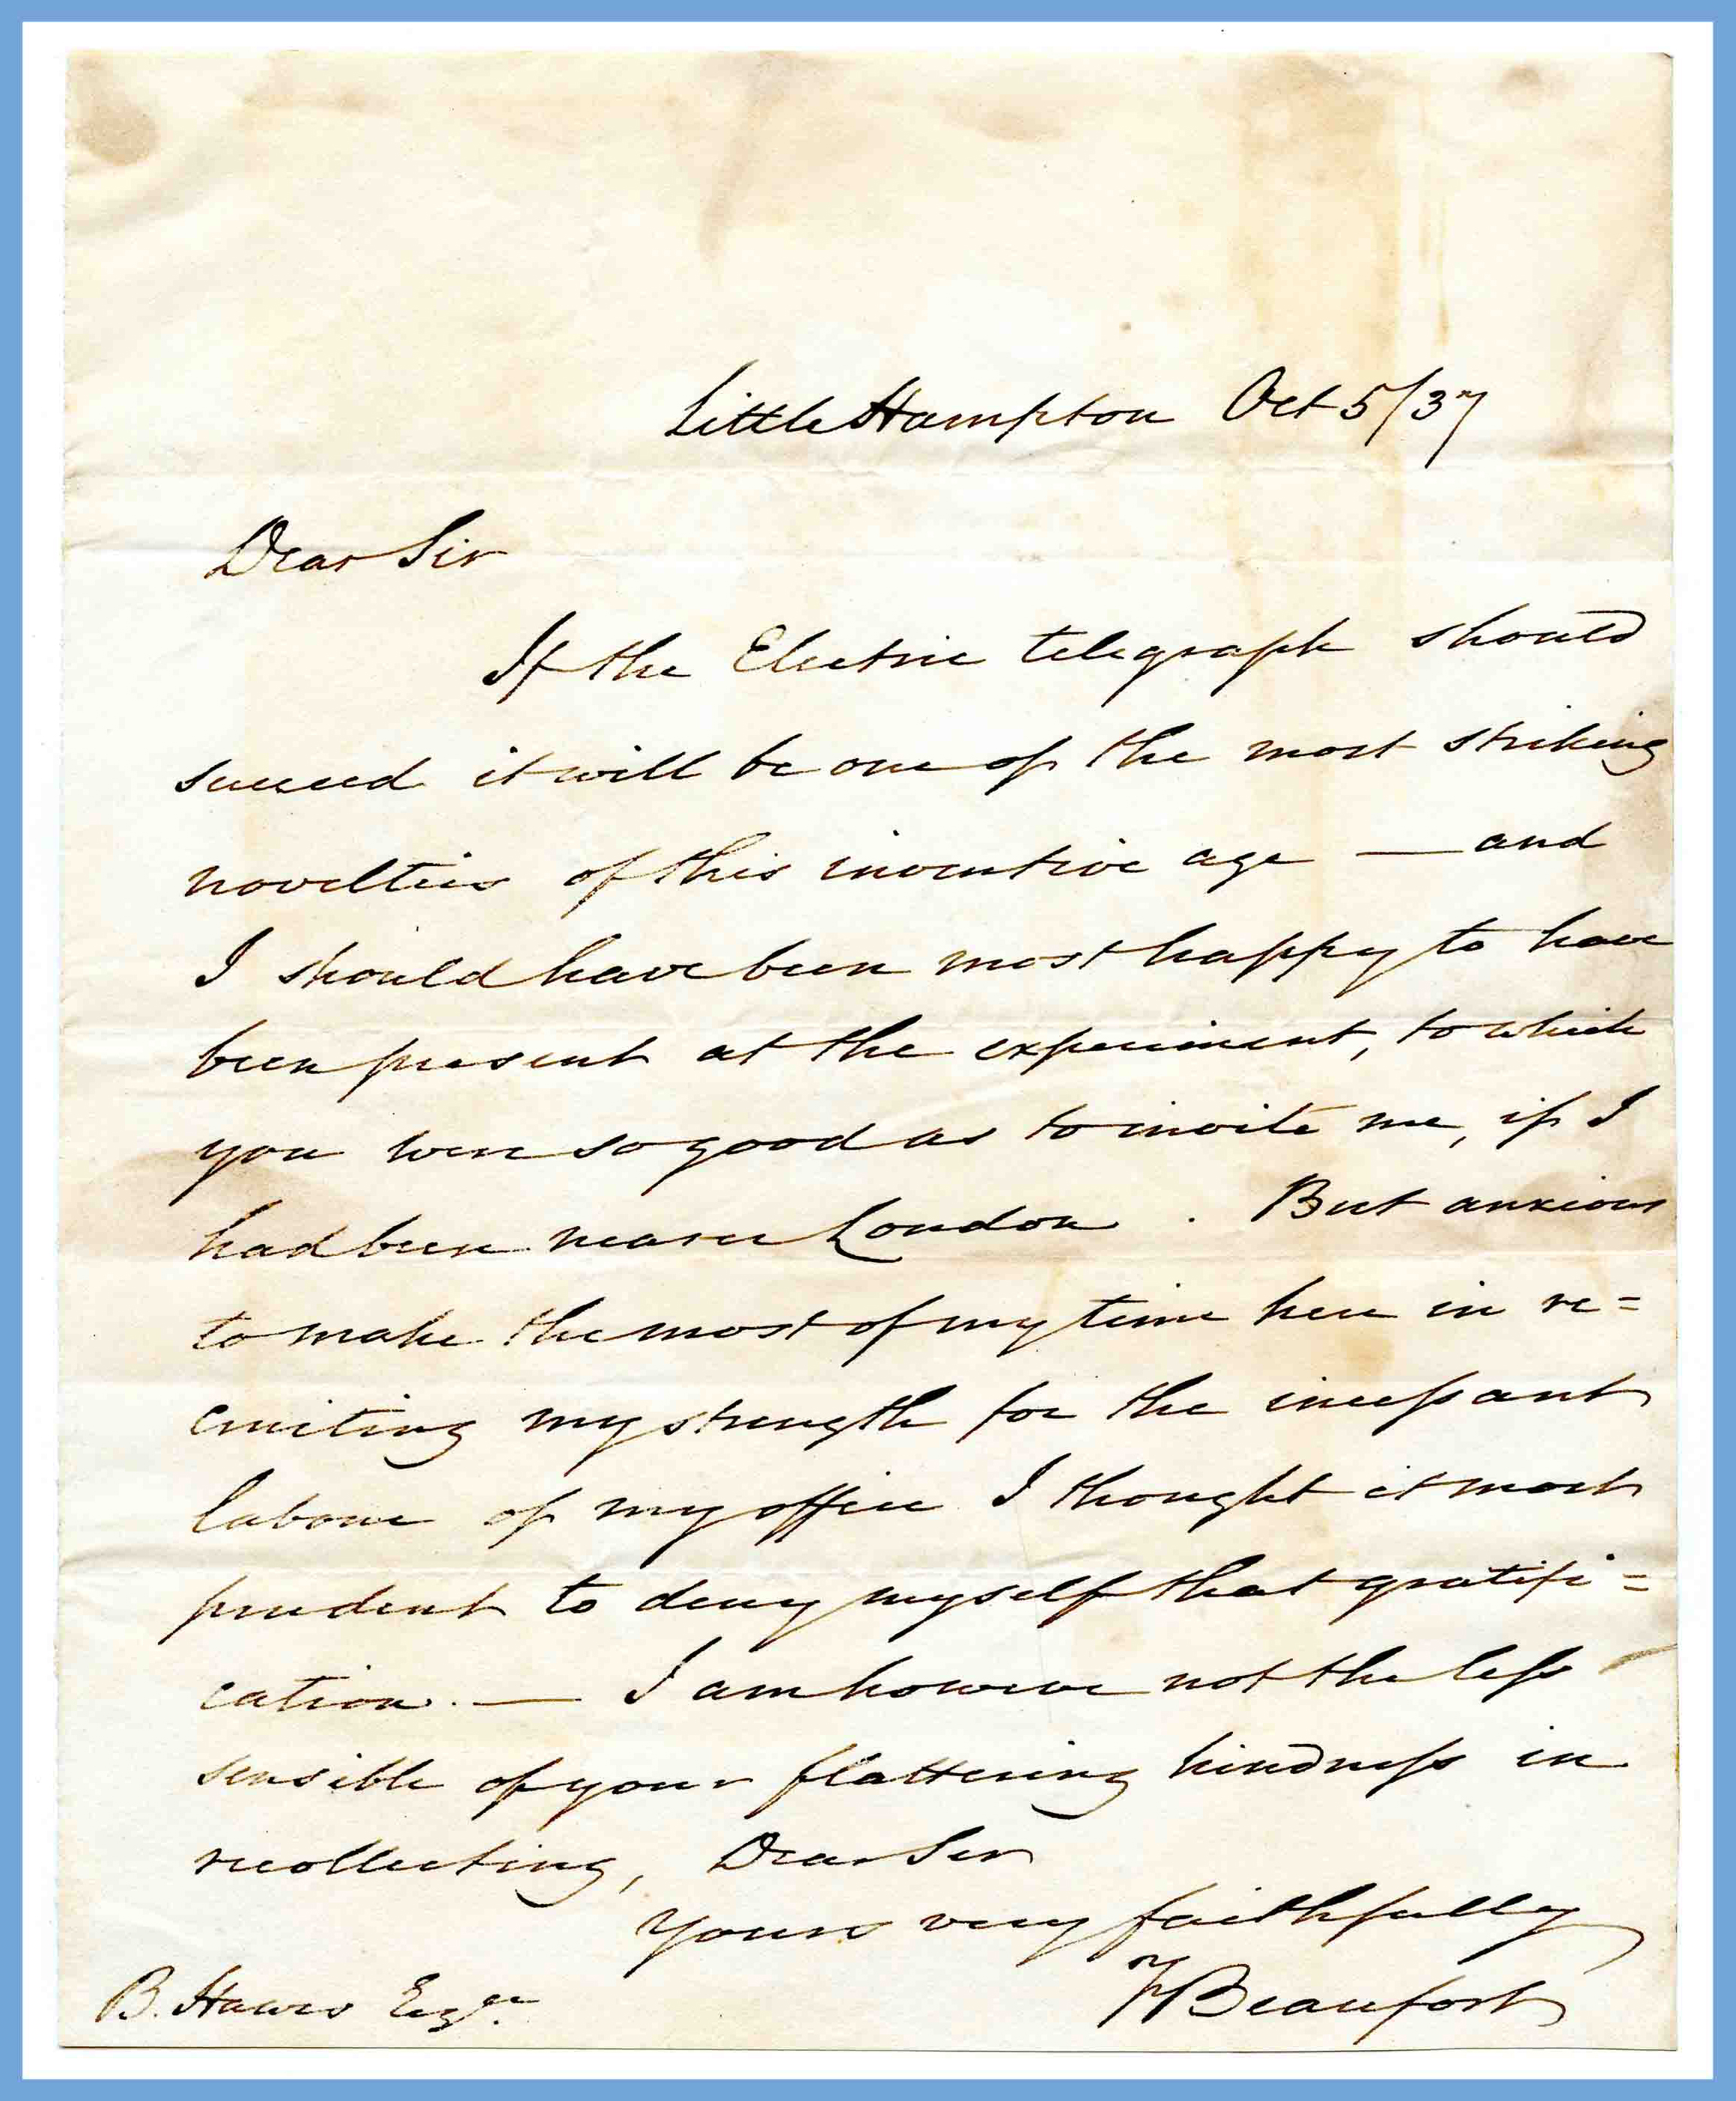 Little Hampton Oct 5/37
Dear Sir
If the Electric telegraph should
succeed it will be one of the most striking
novelties of this inventive age — and
I should have been most happy to have
been present at the experiment, to which
you were so good as to invite me, if I
had been nearer London. But anxious
to make the most of my time here in re=
cruiting my strength for the incessant
labour of my office I thought it most
prudent to deny myself that gratifi=
cation. — I am however not the less
sensible of your flattering kindness in
recollecting, Dear Sir
Yours very faithfully
F Beaufort
B. Hawes Esqre.